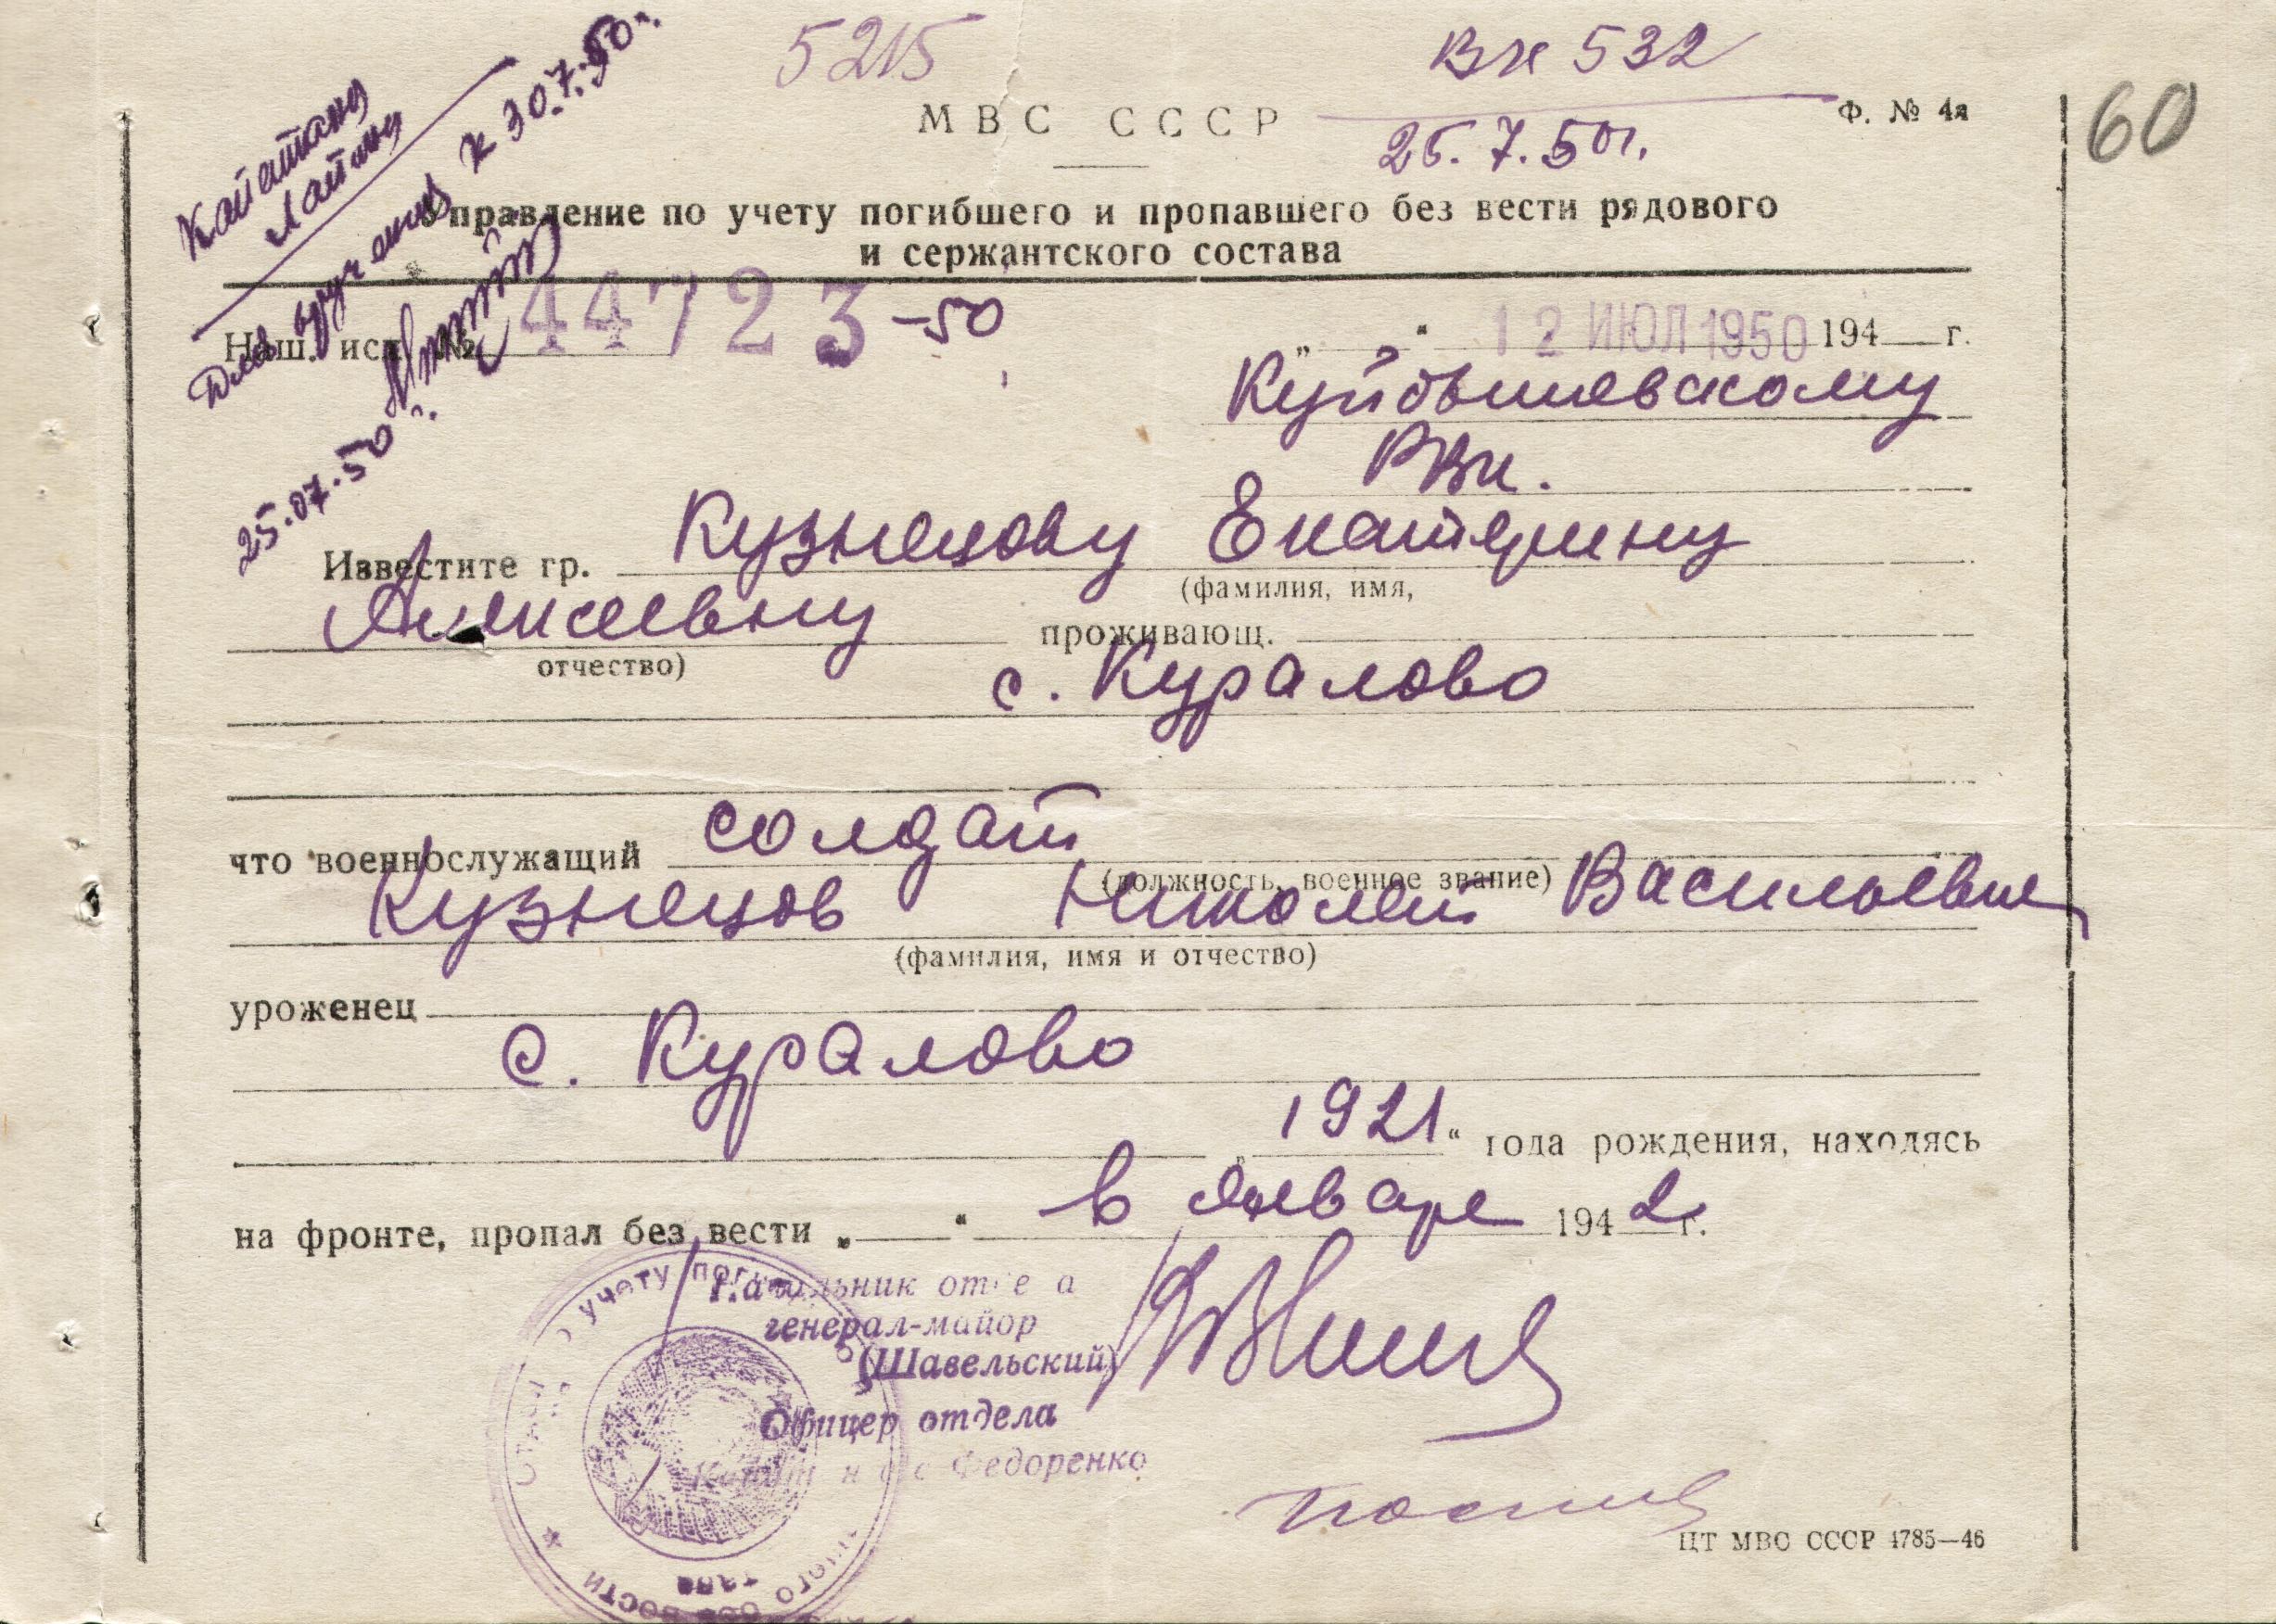 5215
Вх 532
25.7.50г.
60
МВС СССР
Ф. № 4а
Капитану
Лапину
Для вручения к 30.7.50г.
25.07.50г.
Управление по учету погибшего и пропавшего без вести рядового
и сержантского состава
Наш. исх. № 44723-50
„ “ 12 ИЮЛ 1950 194 г.
Куйбышевскому
РВк.
Известите гр. Кузнецову Екатерину
(фамилия, имя,
Алексеевну проживающ.
отчество)
с. Куралово
что военнослужащий солдат
(должность, военное звание)
Кузнецов Николай Васильевич
(фамилия, имя и отчество)
уроженец
с. Куралово
„1921“ года рождения, находясь
на фронте, пропал без вести „ “ в январе 1942 г.
Начальник отдела
генерал-майор
(Шавельский)
Офицер отдела
Федоренко
учету
вести
ЦТ МВС СССР 4785—46